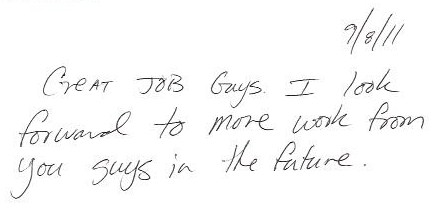 9/8/11
Great JOB Guys. I look
forward to more work from
you guys in the future.